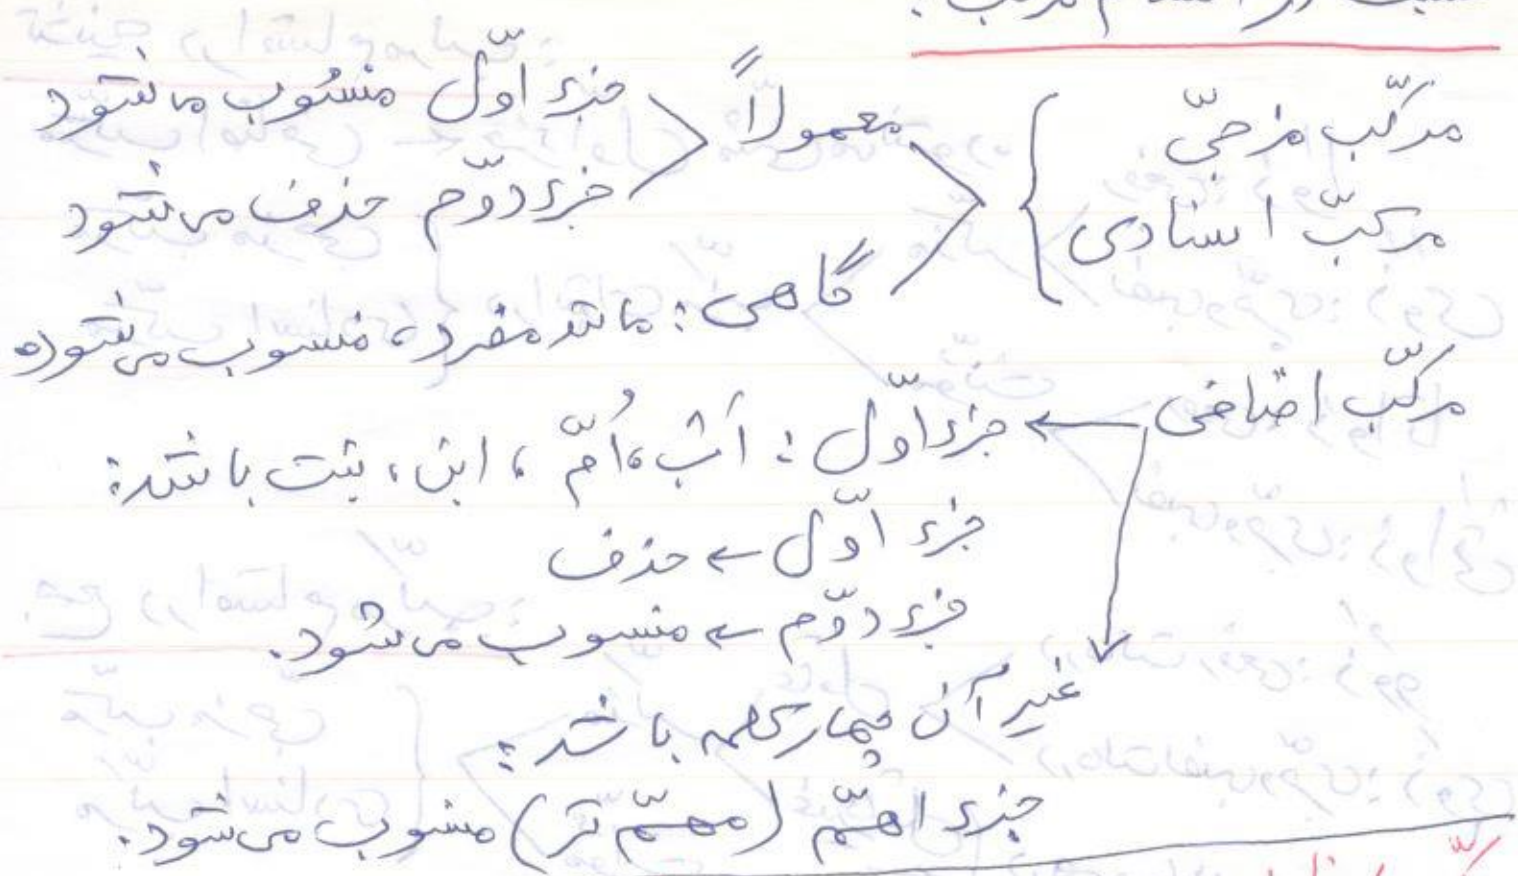 مرکّب مزجیّ
مرکبّ اسنادی
معمولاً
جزء اوّل منسُوب می‌شود
جزء دوّم حذف می‌شود
گاهی: مانند مفرد، منسوب می‌شود.
مرکّب اضافی ← جزء اوّل: اَب، اُمّ، ابن، بنت باشد:
جزء اوّل ← حذف
جزء دوّم ← منسوب می‌شود.
غیر آن چهار کلمه باشد:
جزء اهمّ (مهمّ‌تر) منسوب می‌شود.